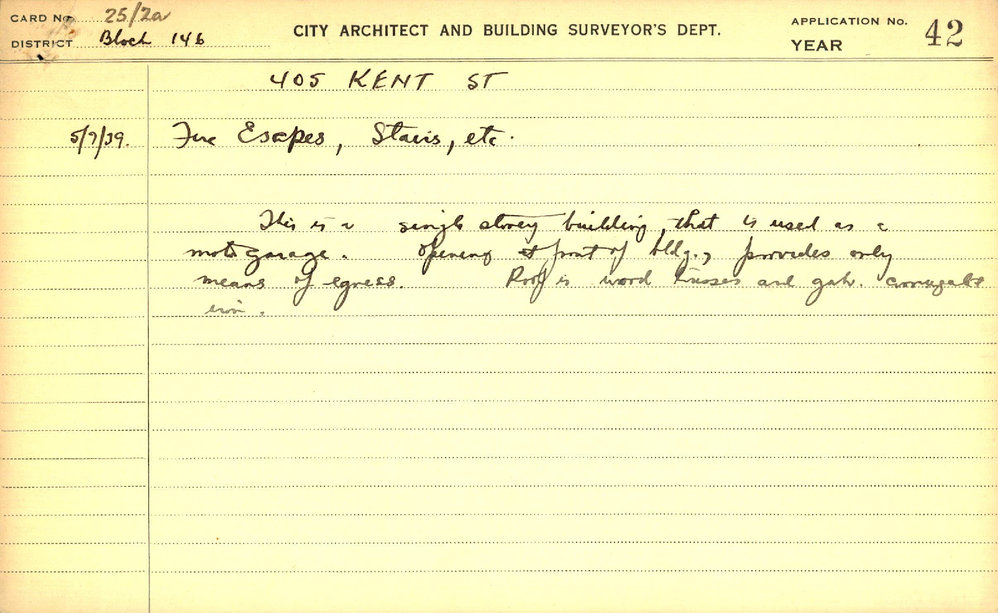 CARD No. 25/2a
CITY ARCHITECT AND BUILDING SURVEYOR'S DEPT.
APPLICATION No. 42
DISTRICT Block 146
YEAR
405 KENT ST
5/7/39. Fire Escapes, Stairs, etc.
This is a single storey building, that is used as a
motor garage. Opening at front of bldg., provides only
means of egress. Roof is wood trusses and galv. corrugated
iron.